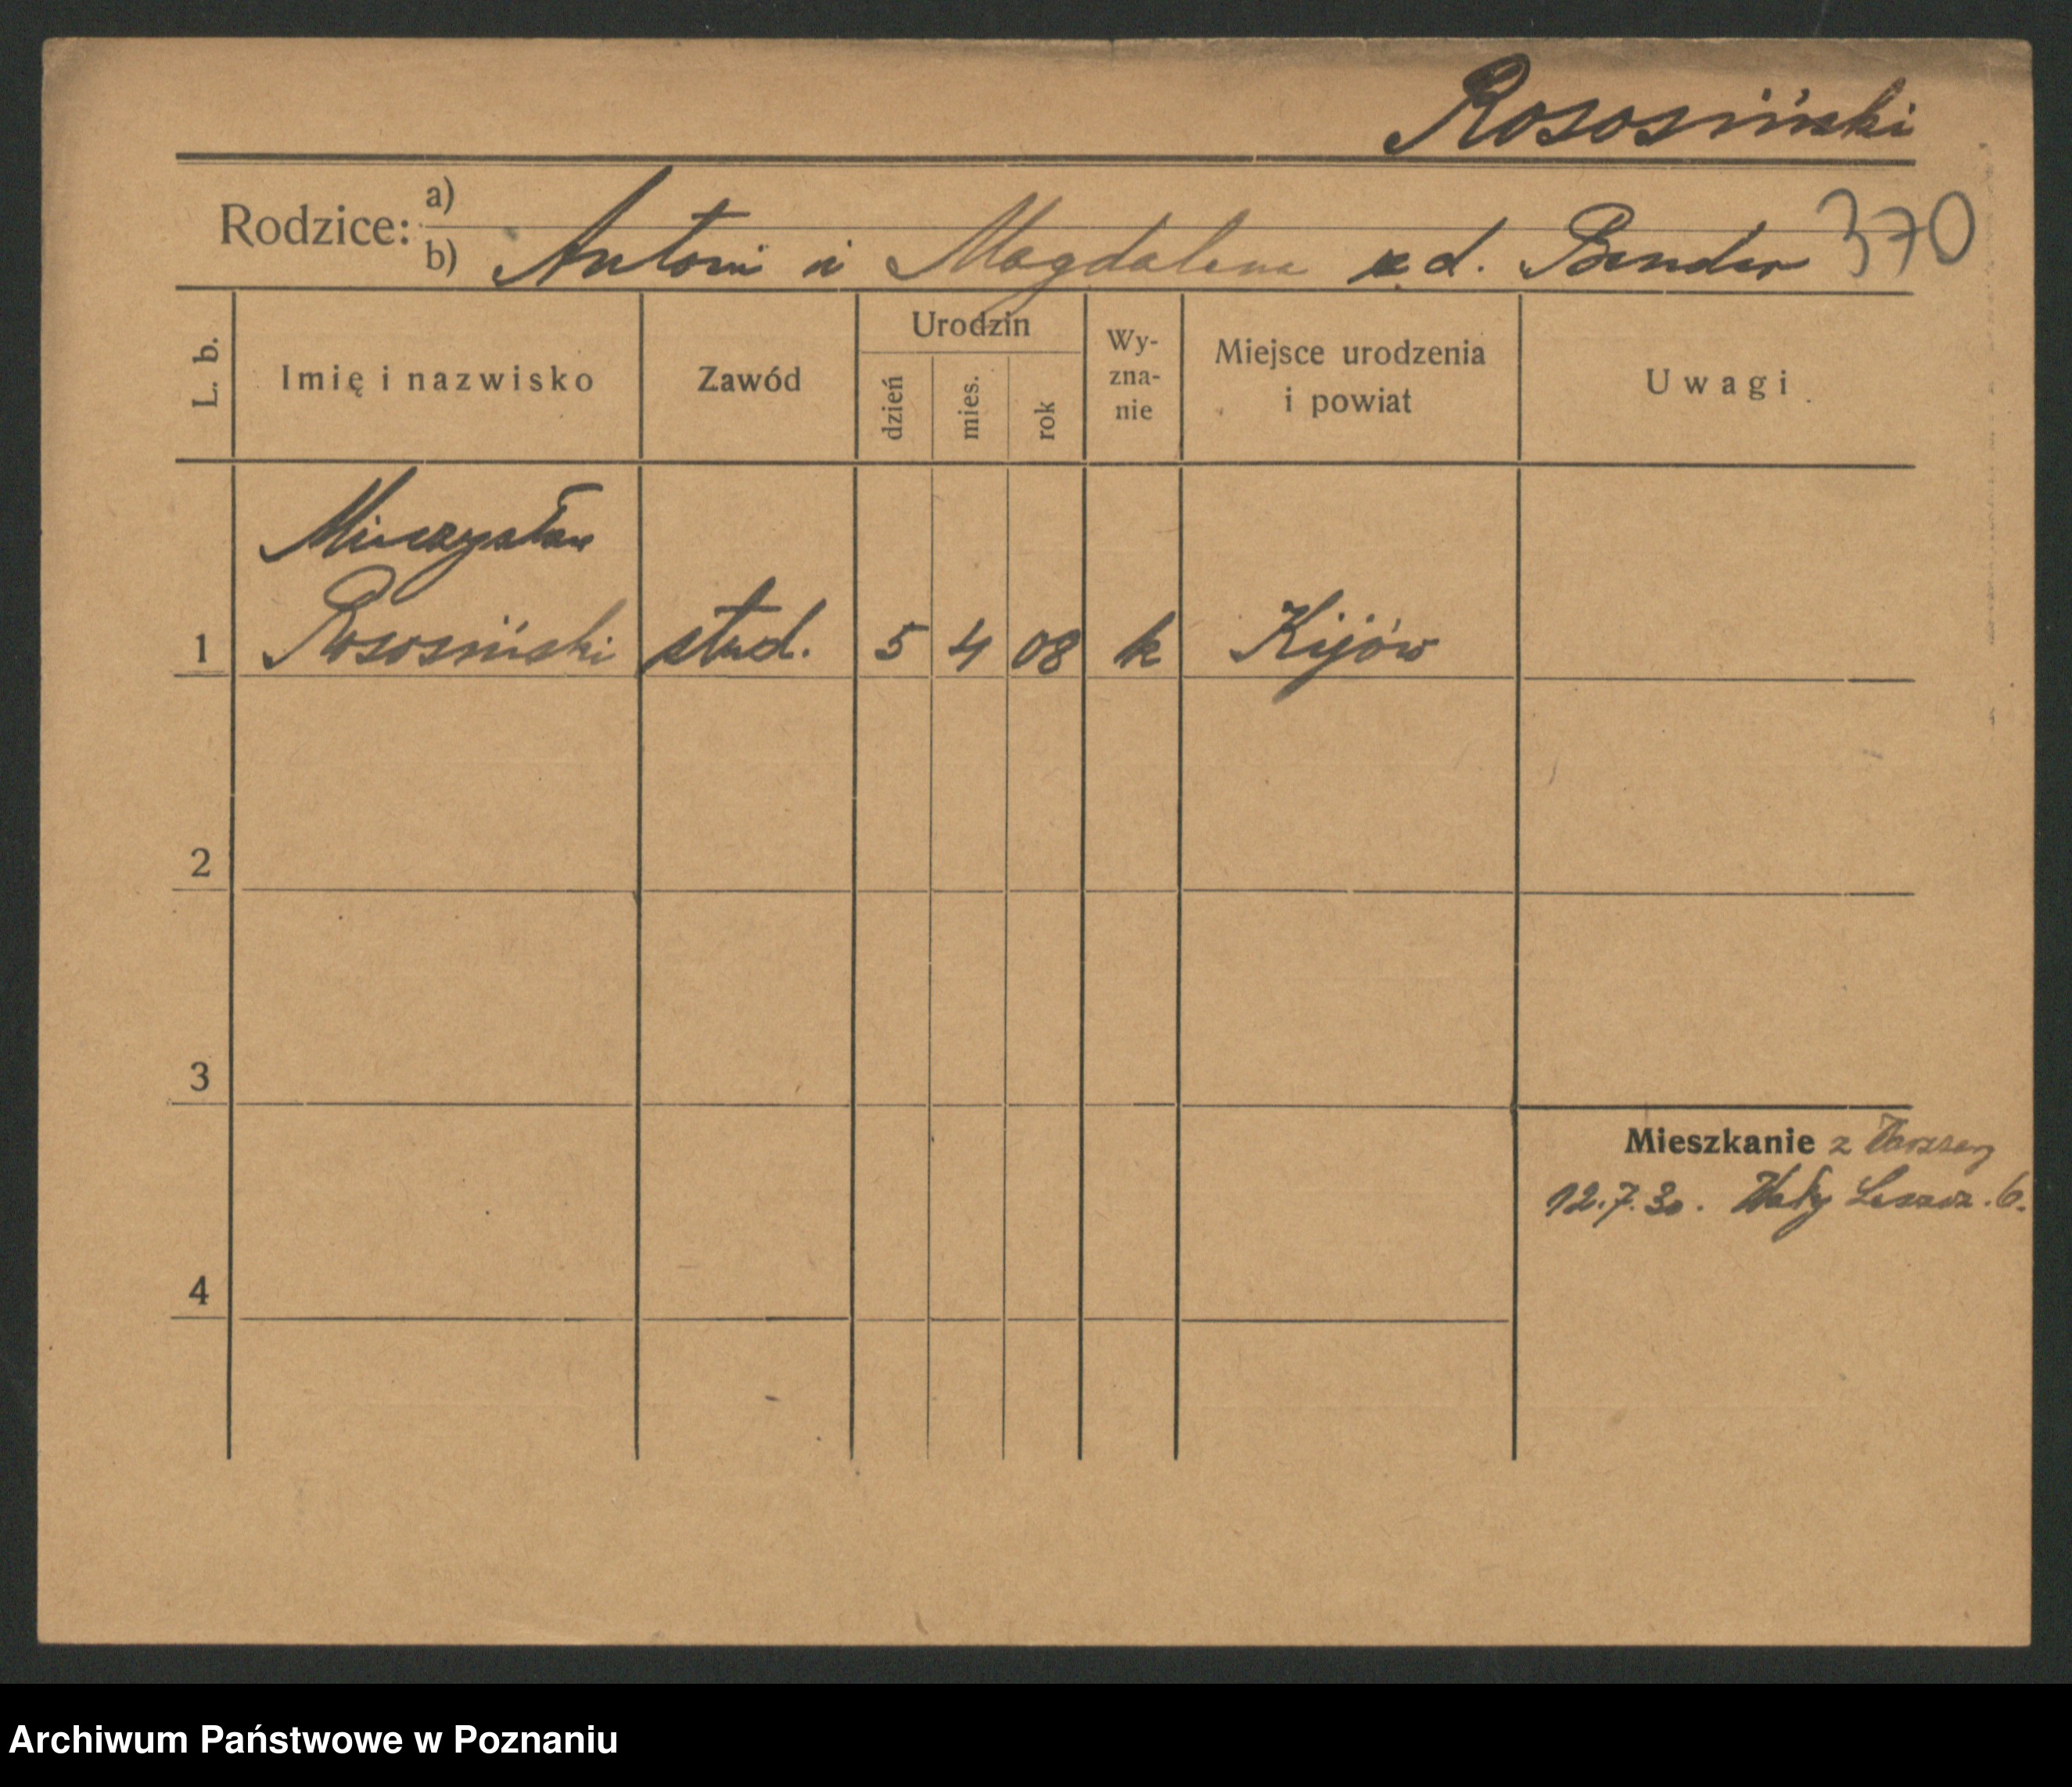 Rososiński
Rodzice: a)
b) Antoni i Magdalena z d. Bender 370
L. b. Imię i nazwisko Zawód Urodzin dzień mies. rok Wy-zna-nie Miejsce urodzenia i powiat Uwagi
Mieczysław
1 Rososiński stud. 5 4 08 k Kijów
2
3
Mieszkanie z
12.7.30. Wały Leszcz. 6.
4
Archiwum Państwowe w Poznaniu